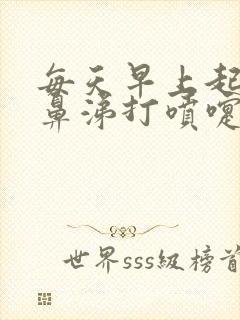 每天早上起
鼻涕打噴嚏
世界sss級榜首